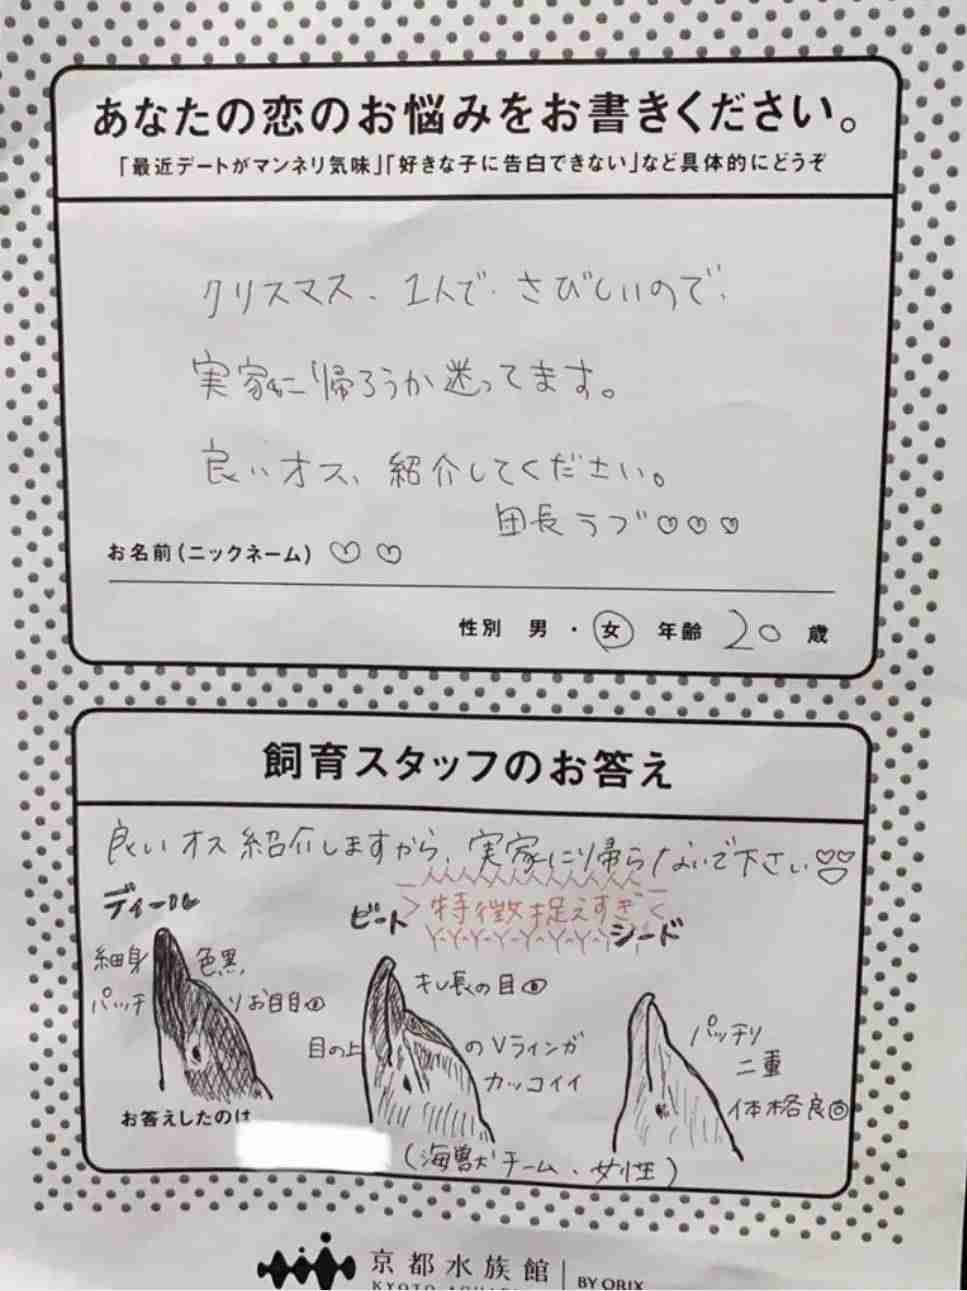 あなたの恋のお悩みをお書きください。
「最近デートがマンネリ気味」「好きな子に告白できない」など具体的にどうぞ
クリスマス、1人で、さびしいので、
実家に帰ろうか迷ってます。
良いオス、紹介してください。
団長ラブ♡♡♡
お名前(ニックネーム) ♡♡
性別 男・女 年齢 20 歳
飼育スタッフのお答え
良いオス紹介しますから、実家に帰らないで下さい♡♡♡
特徴捉えすぎ
ディール
細身 色黒
パッチリお目目
ビート
キレ長の目
目の上のVラインが
カッコイイ
シード
パッチリ
二重
体格良◎
お答えしたのは
(海獣チーム、女性)
京都水族館
KYOTO
BY ORIX